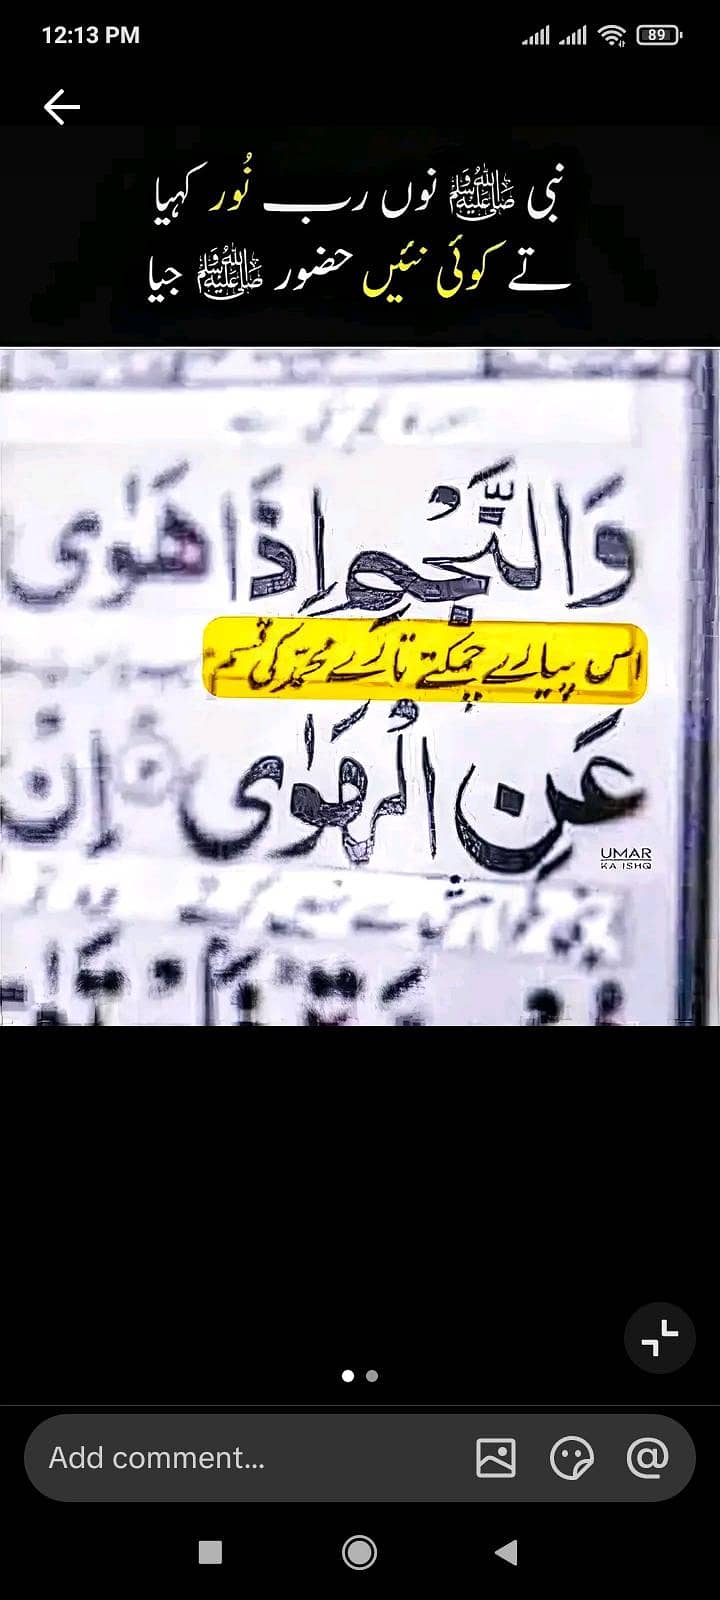 12:13 PM
89
نبی ﷺ نوں رب نُور کہیا
تے کوئی نئیں حضور ﷺ جیا
وَالنَّجْمِ اِذَا هَوٰى
اس پیارے چمکتے تارے محمدؐ کی قسم
عَنِ الْهَوٰى اِنْ
UMAR
KA ISHQ
Add comment...